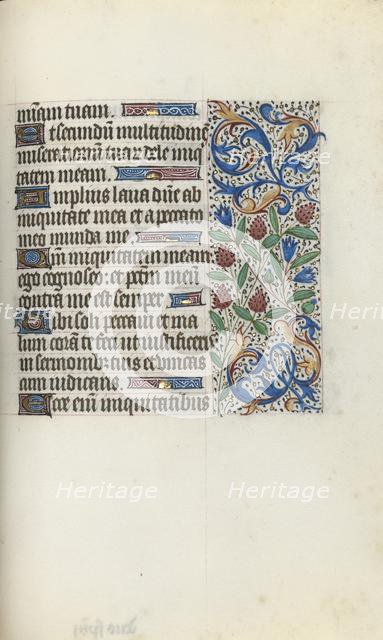 mīam tuam.
Et secundū multitudinē
miseratıonū tuar dele iniq
tatem meam.
Amplius laua dn̄e ab
iniquitate mea et a peccato
meo munda me.
Qm̄ iniquitatem meam
ego cognosco: et pctm̄ meū
contra me est semper
Tibi soli peccaui et ma
lum corā te feci ut iustificeris
in sermonibz tuis et vincas
cum iudicaris
Ecce em̄ iniquitatibus
Heritage
Heritage
Heritage
Heritage
Heritage
Heritage